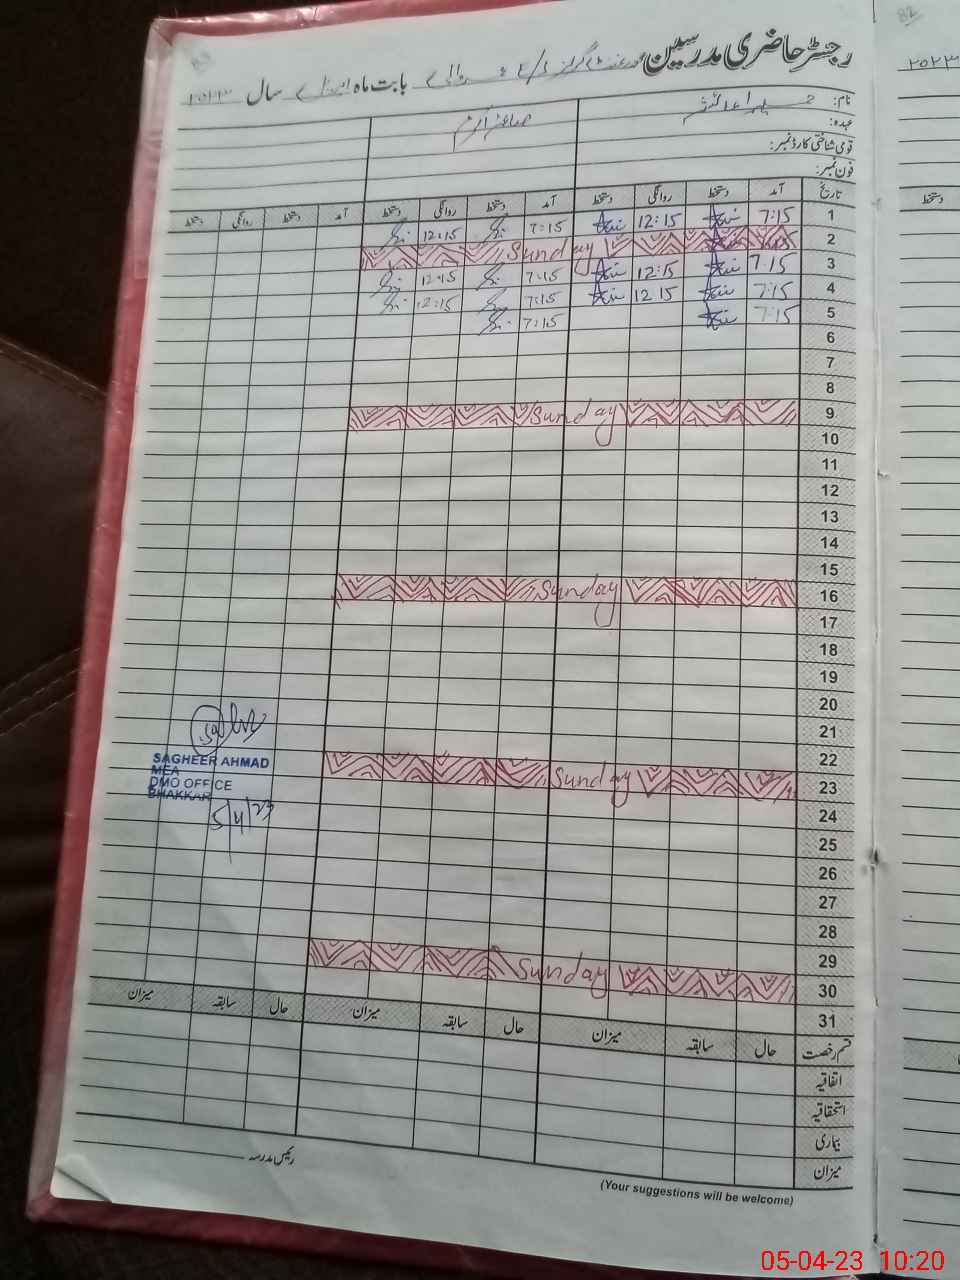 82
رجسٹر حاضری مدرسین
بابت ماہ سال ۲۰۲۳
۲۰۲۳
نام:
عہدہ:
قومی شناختی کارڈ نمبر:
فون نمبر:
تاریخ آمد دستخط روانگی دستخط آمد دستخط روانگی دستخط آمد دستخط روانگی دستخط
دستخط
1 7:15 12:15 7:15 12:15
2 Sunday
3 7:15 12:15 7:15 12:15
4 7:15 12:15 7:15 12:15
5 7:15 7:15
6
7
8
9 Sunday
10
11
12
13
14
15
16 Sunday
17
18
19
20
21
22
23 Sunday
24
25
26
27
28
29
30 Sunday
31
SAGHEER AHMAD
MEA
DMO OFFICE
BHAKKAR
5/4/23
قسم رخصت حال سابقہ میزان حال سابقہ میزان حال سابقہ میزان
اتفاقیہ
استحقاقیہ
بیماری
میزان
رئیس مدرسہ
(Your suggestions will be welcome)
05-04-23 10:20